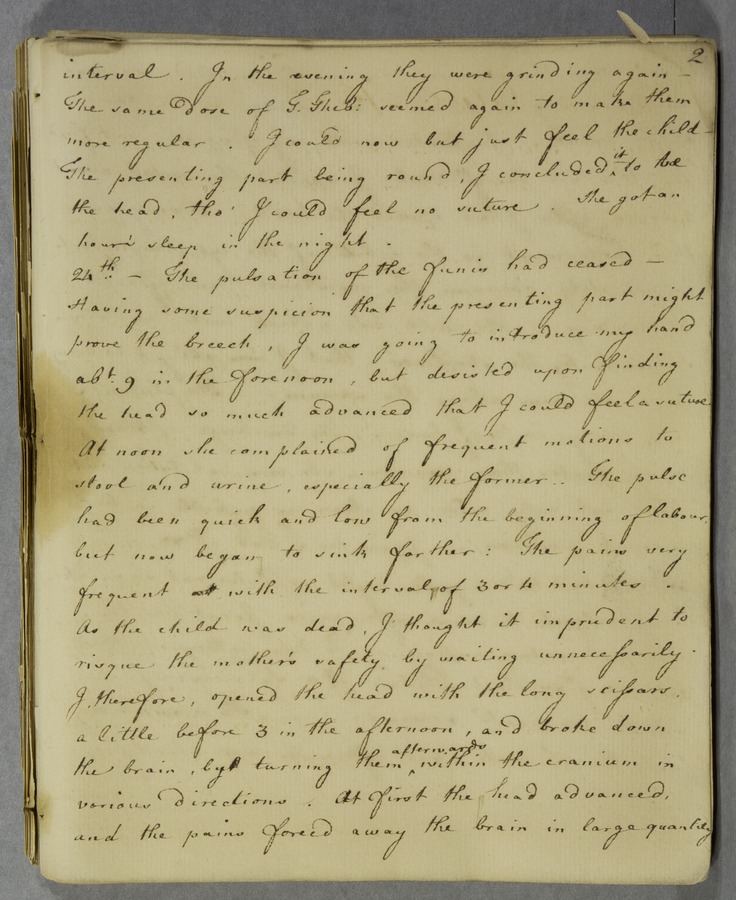 2
interval. In the evening they were grinding again -
The same Dose of G. Theb: seemed again to make them
more regular. I could now but just feel the child -
The presenting part being round, I concluded it to be
the head, tho' I could feel no suture. She got an
hour's sleep in the night.
24th. - The pulsation of the funis had ceased -
Having some suspicion that the presenting part might
prove the breech, I was going to introduce my hand
abt. 9 in the forenoon, but desisted upon finding
the head so much advanced that I could feel a suture.
At noon she complained of frequent motions to
stool and urine, especially the former.. The pulse
had been quick and low from the beginning of labour,
but now began to sink farther: The pains very
frequent with the intervals of 3 or 4 minutes.
As the child was dead, I thought it imprudent to
risque the mother's safety by waiting unnecessarily.
I, therefore, opened the head with the long scissars,
a little before 3 in the afternoon, and broke down
the brain, by turning them afterwards within the cranium in
various directions. At first the head advanced,
and the pains forced away the brain in large quantity